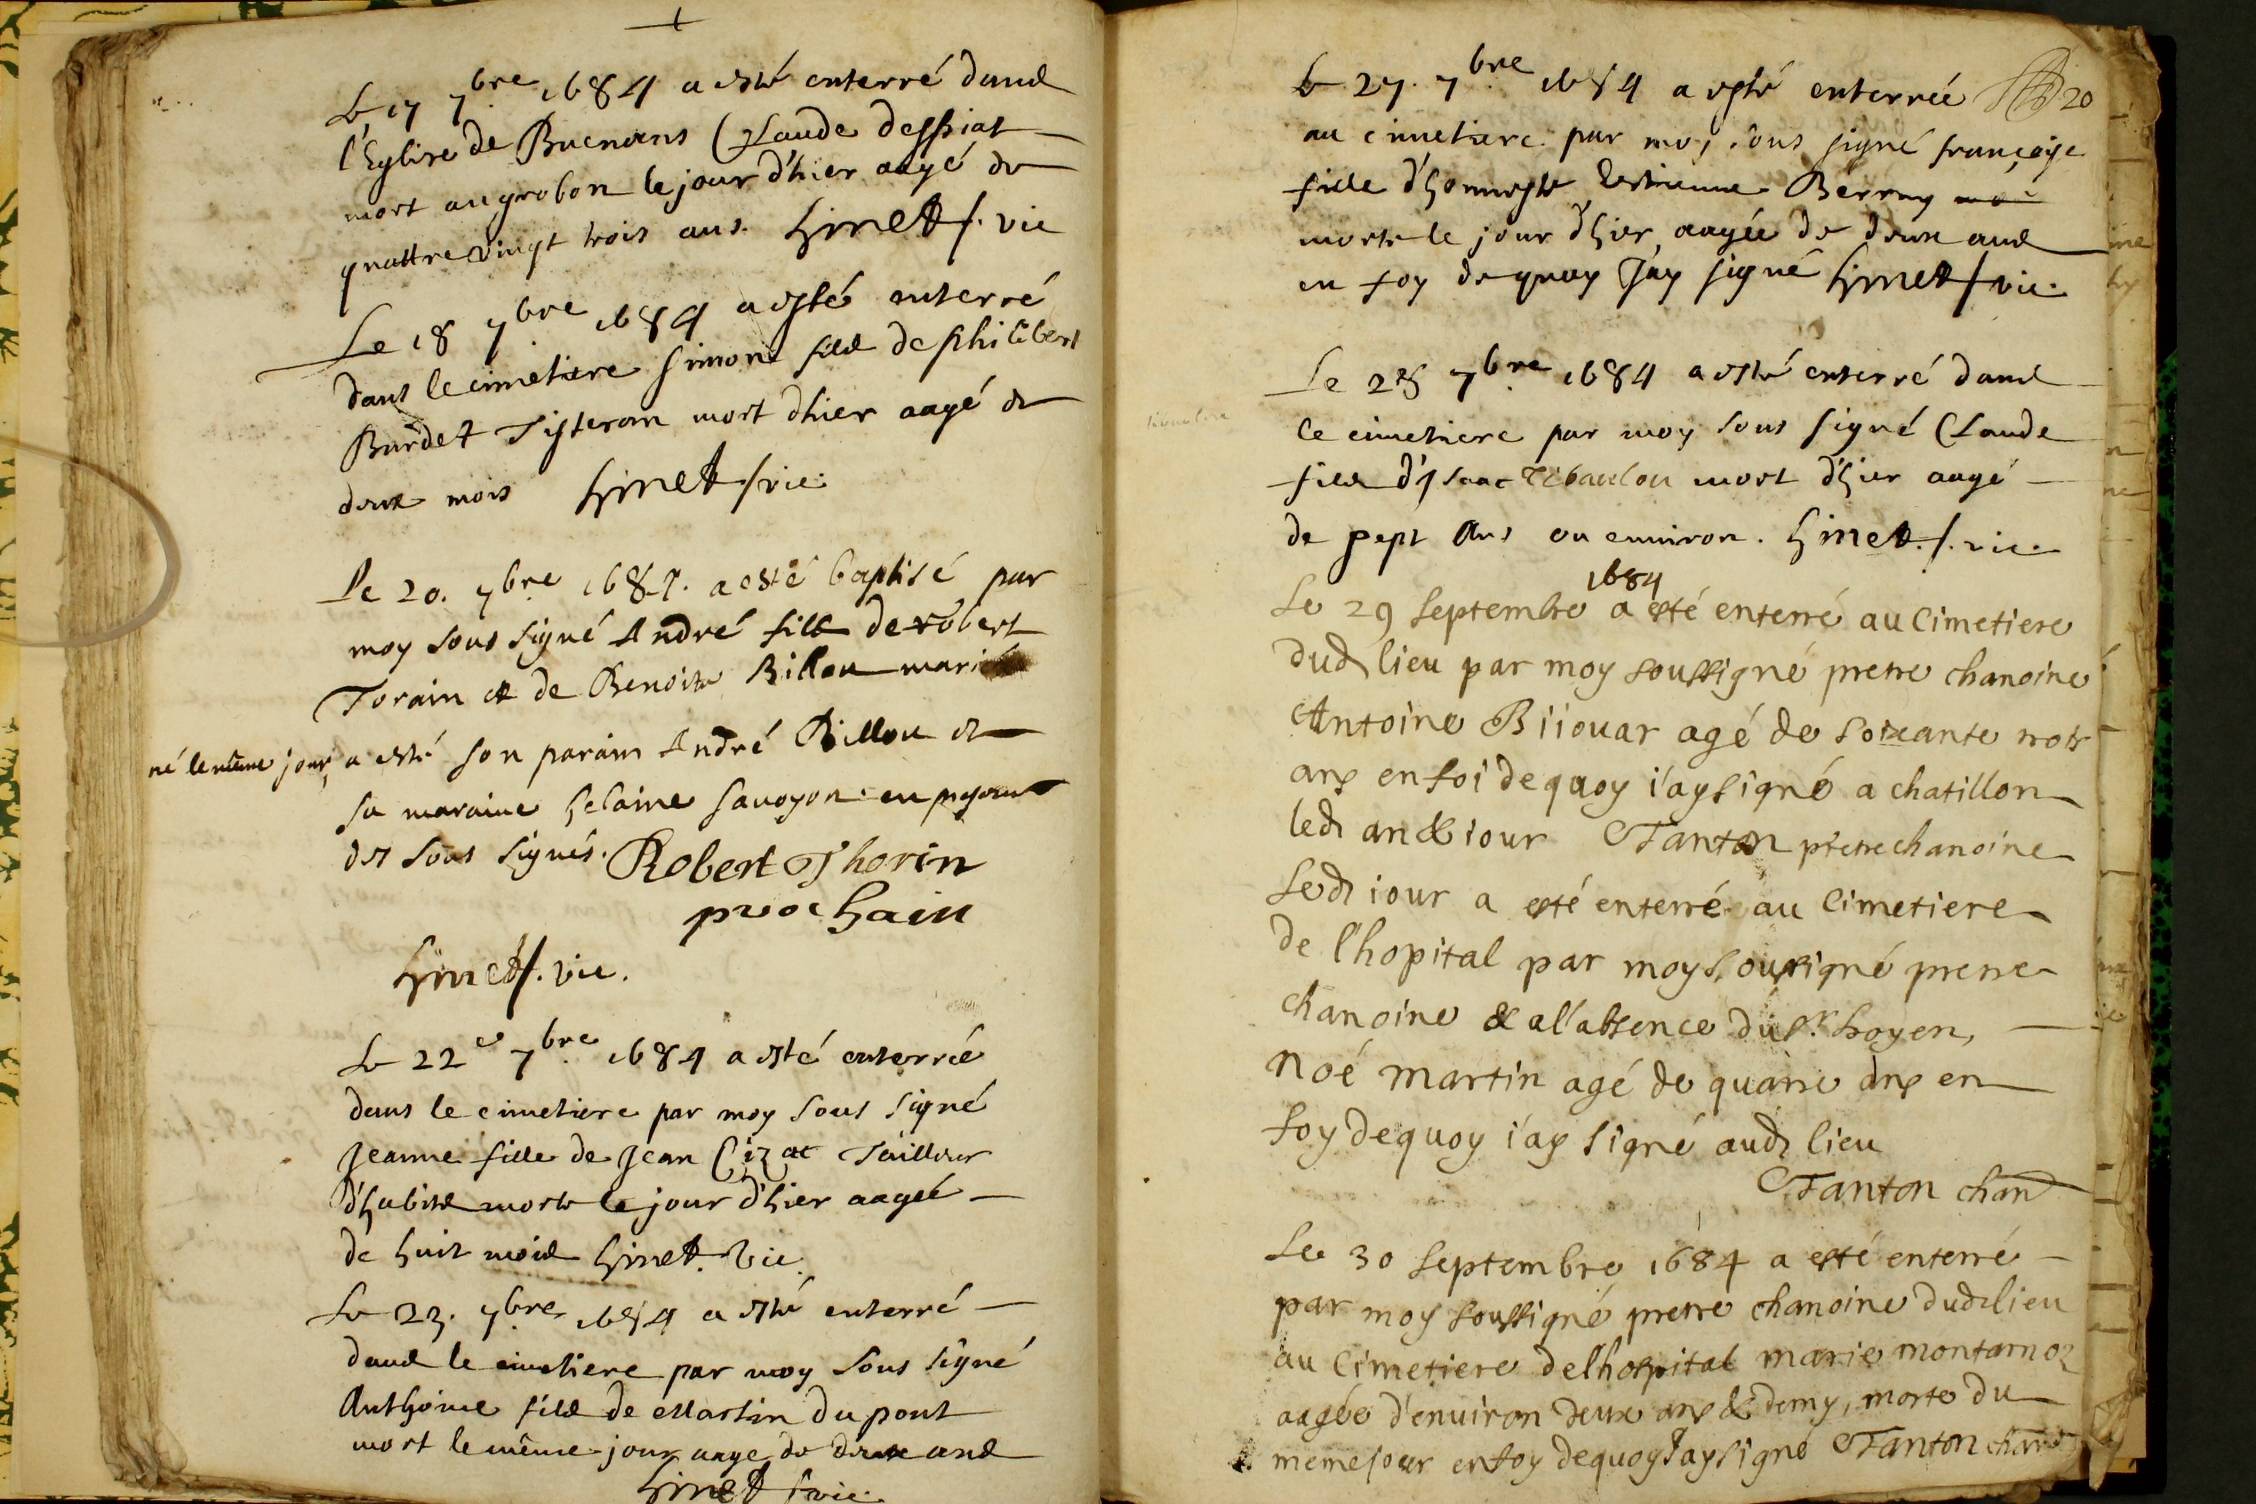 Le 17 7bre 1684 a esté enterré dans
l'Eglise de Buenans Claude desspiat
mort au grobon le jour d'hier aagé de
quattre vingt trois ans. vic
Le 18 7bre 1684 a esté enterré
dans le cimetiere Simon fils de philibert
Burdet Tisteran mort d'hier aagé de
deux mois vic.
Le 20. 7bre 1684. a esté baptisé par
moy sous signé André fils de robert
Torain et de Benoite Billou mariés
né le même jour, a esté son parain André Billou et
sa maraine helaine Sauoyon en presence
des sous signés. Robert Thorin
prochain
vic.
Le 22e 7bre 1684 a esté enterrée
dans le cimetiere par moy sous signé
Jeanne fille de Jean Cizat Tailleur
d'habits morte le jour d'hier aagée
de huit mois vic.
Le 23. 7bre 1684 a esté enterré
dans le cimetiere par moy sous signé
Anthoine fils de Martin du pont
mort le même jour aagé de deux ans
vic.
20
Le 27. 7bre 1684 a esté enterrée
au cimetiere par moy sous signé françoise
fille d'honneste Estienne Berroy
morte le jour d'hier, aagée de deux ans
en foy de quoy J'ay signé vic.
Le 28 7bre 1684 a esté enterré dans
le cimetiere par moy sous signé Claude
fils d'Isaac Tiboulou mort d'hier aagé
de sept ans ou enuiron. vic.
1684
Le 29 Septembre a esté enterré au Cimetiere
dud lieu par moy soussigné pretre chanoine
Antoine Biiouar agé de soixante trois
ans en foi de quoy i'ay signé a chatillon
led an & iour Tanton pretre chanoine
Led iour a esté enterré au Cimetiere
de l'hopital par moy soussigné pretre
chanoine & a l'absence du sr hoyen,
noé martin agé de quatre ans en
foy de quoy i'ay signé aud lieu
Tanton chan
Le 30 Septembre 1684 a esté enterré
par moy soussigné pretre chanoine dud lieu
au Cimetiere de l'hospital marie montarnoz
aagée d'enuiron deux ans & demy, morte du
meme jour en foy de quoy J'ay signé Tanton chan